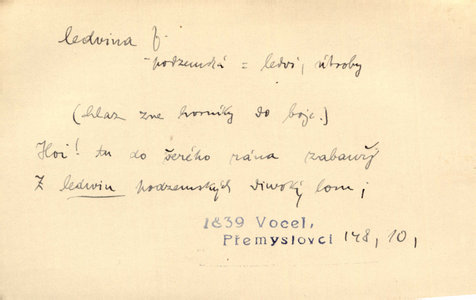 ledvina f.
podzemská = ledví, útroby
(hlas zve horníky do boje.)
Hoi! tu do šerého rána zabauří
Z ledwin podzemských diwoký lom,
1839 Vocel,
Přemyslovci 148, 10,